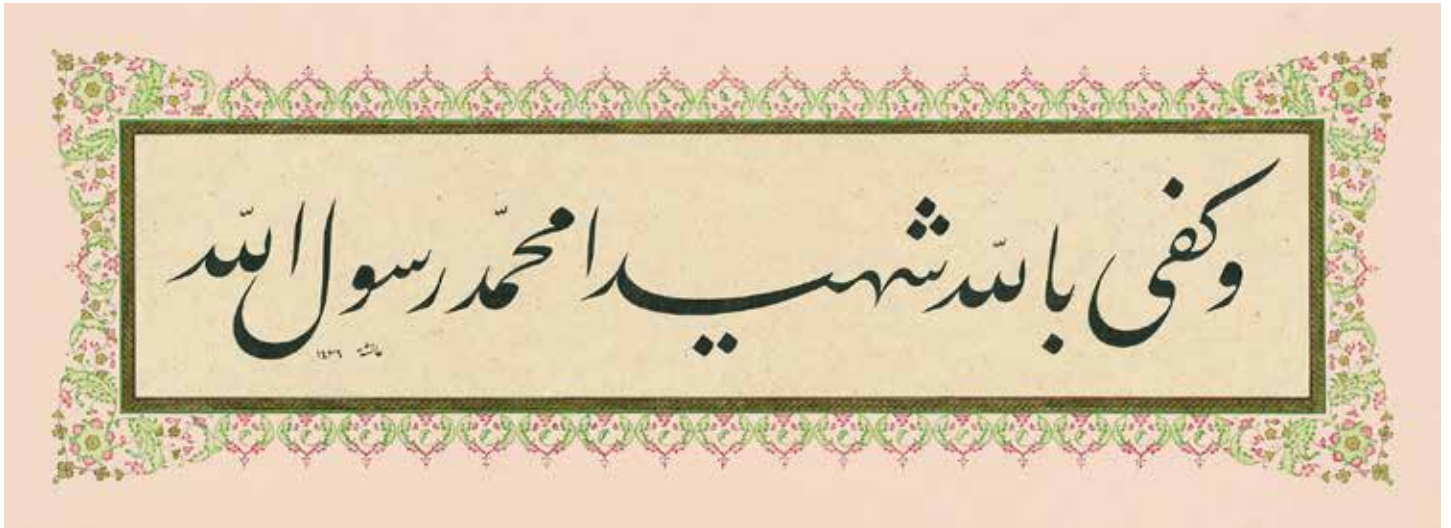 وكفى بالله شهيدا محمّد رسول الله
عائشة ١٤٣٦